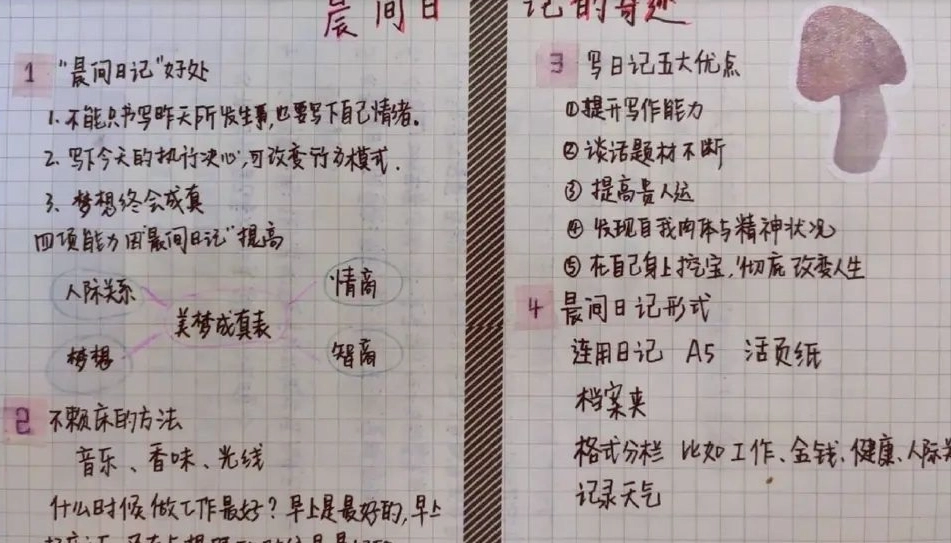 晨间日记的奇迹
1 "晨间日记"好处
1. 不能只书写昨天所发生事,也要写下自己情绪。
2. 写下今天的执行决心,可改变行为模式.
3. 梦想终会成真
四项能力因"晨间日记"提高
人际关系 情商
美梦成真表
梦想 智商
2 不赖床的方法
音乐、香味、光线
什么时候做工作最好?早上是最好的,早上
3 写日记五大优点
①提升写作能力
②谈话题材不断
③提高贵人运
④发现自我肉体与精神状况
⑤在自己身上挖宝,彻底改变人生
4 晨间日记形式
连用日记 A5 活页纸
档案夹
格式分栏 比如工作、金钱、健康、人际
记录天气